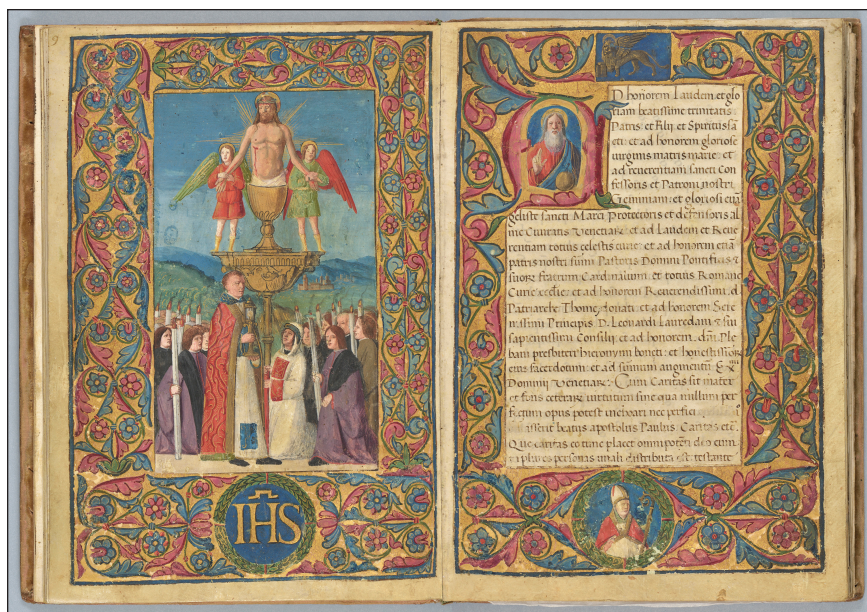 9
IHS
AD honorem Laudem et glo
riam beatissime trinitatis
Patris et Filij et Spiritus sã
cti et ad honorem gloriose
virginis matris marie et
ad reverentiam sancti Con
fessoris et Patroni nostri
Geminiani et gloriosi evã
geliste sancti Marci Protectoris et defensoris al
me Civitatis Venetiar et ad Laudem et Reve
rentiam totius celestis curie et ad honorem etiã
patris nostri sumi Pastoris Domini Pontificis et
suor fratrum Cardinalium et totius Romane
Curie et ad honorem Reverendissimi d
Patriarche Thome donati et ad honorem Sere
nissimi Principis D. Leonardi Lauredani et sui
sapientissimi Consilij et ad honorem dñi Ple
bani presbiteri hieronymi boneti et honestissior
eius sacerdotum et ad sumum augmentum
Dominij Venetiar Cum Caritas sit mater
et fons ceterar virtutum sine qua nullum per
fectum opus potest inchoari nec perfici
beatus apostolus Paulus Caritas etc
Que caritas eo tunc placet omnipotenti deo cum
personas distributa est testante